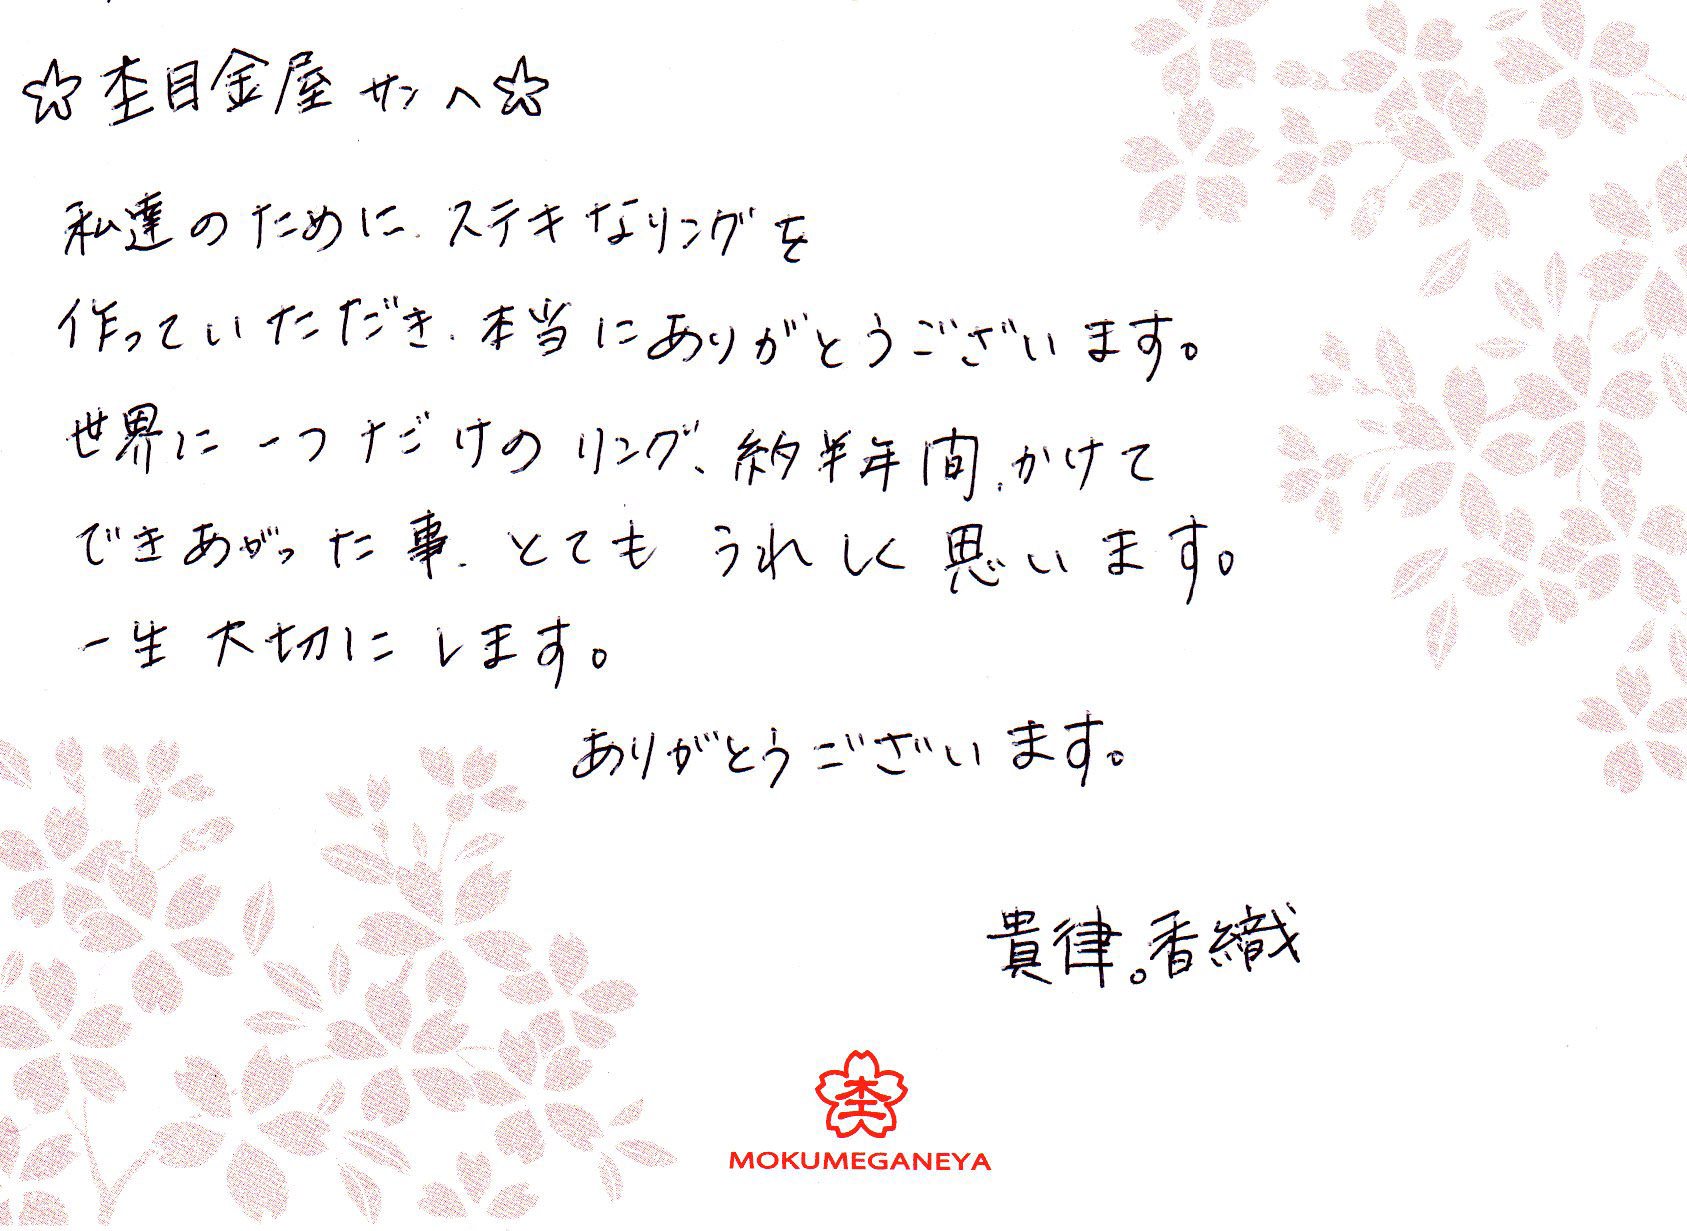 ☆杢目金屋サンへ☆
私達のために、ステキなリングを
作っていただき、本当にありがとうございます。
世界に一つだけのリング、約半年間、かけて
できあがった事、とてもうれしく思います。
一生大切にします。
ありがとうございます。
貴律。香織
杢
MOKUMEGANEYA